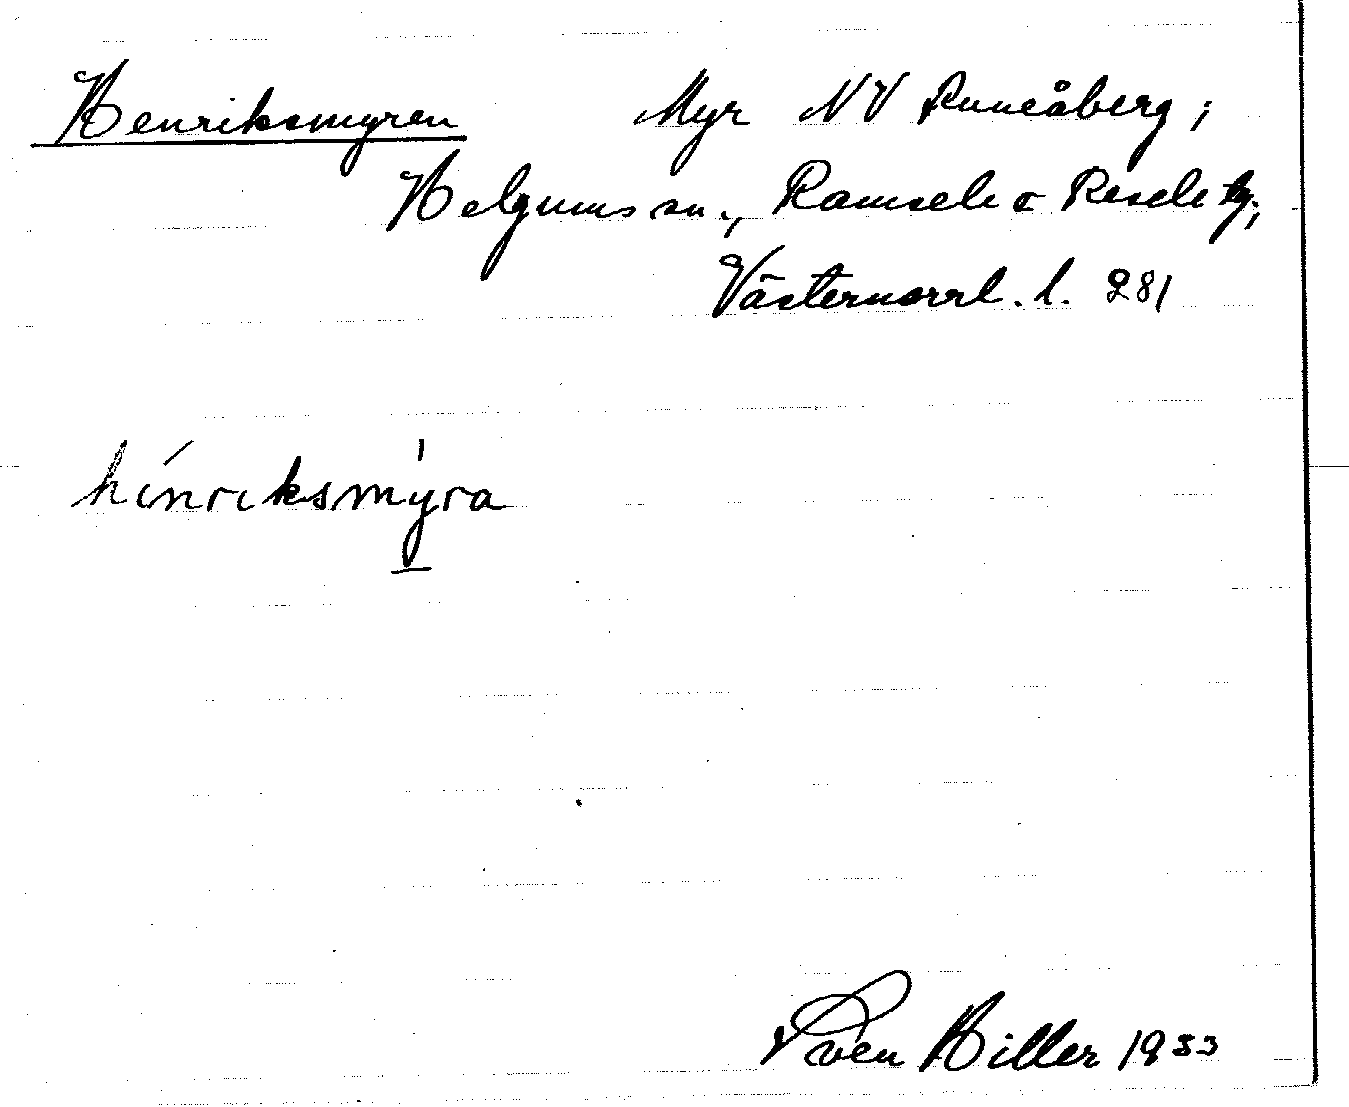 Henriksmyren Myr NV Runeåberg;
Helgums sn., Ramsele o Resele tg;
Västernorrl. l. 281
hínriksmy̲̍ra
Sven Hiller 1933